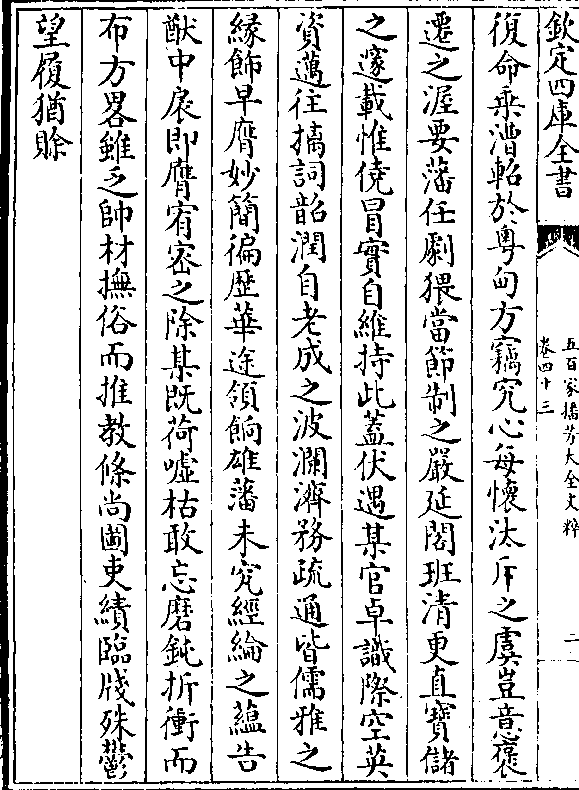 欽定四庫全書
五百家播芳大全文粹
卷四十三
二
復命乗漕軺於粤甸方竊究心每懐汰斥之虞豈意褒
遷之渥要藩任劇猥當節制之嚴延閣班清更直寶儲
之邃載惟僥冒實自維持此蓋伏遇某官卓識際空英
資邁往摛詞韶潤自老成之波瀾濟務疏通皆儒雅之
緣飾早膺妙簡徧歴華途領餉雄藩未究經綸之蘊告
猷中扆即膺宥宻之除某既荷嘘枯敢忘磨鈍折衝而
布方畧雖乏帥材撫俗而推教條尚圖吏績臨牋殊鬱
望履猶賖